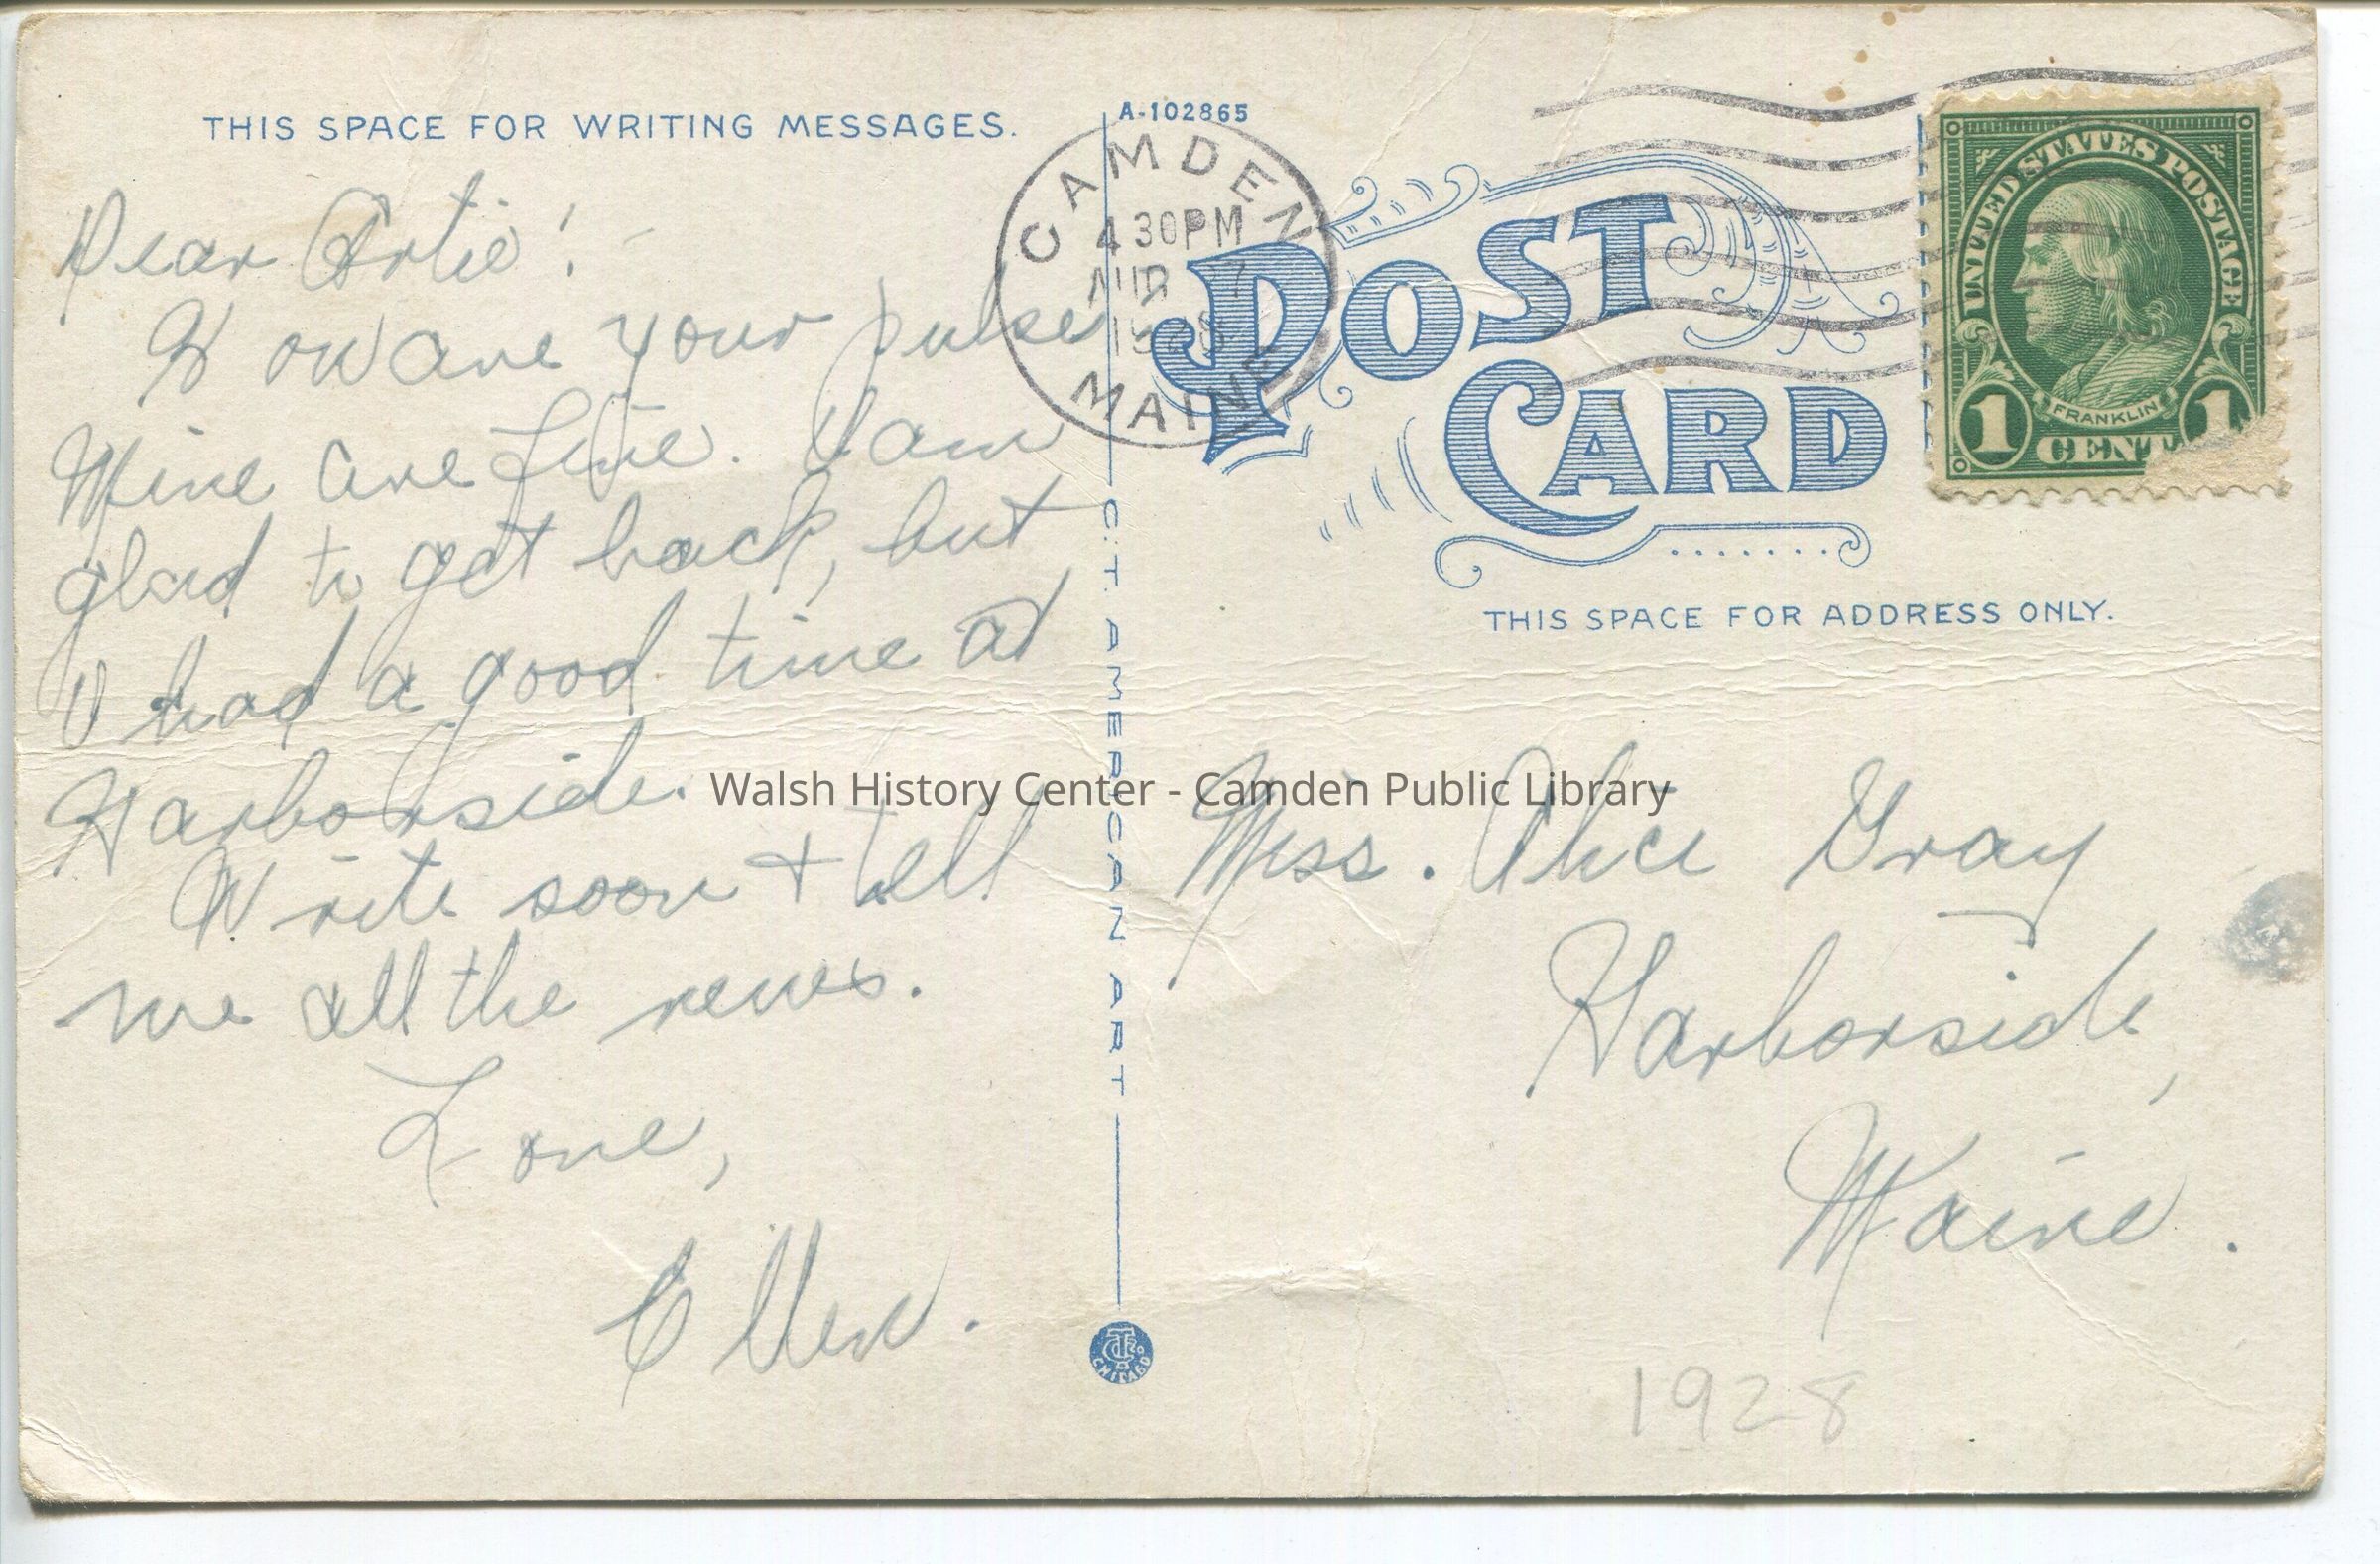 THIS SPACE FOR WRITING MESSAGES.
Dear Artie! -
How are your pulses
Mine are fine. I am
glad to get back, but
I had a good time at
Harborside.
Write soon + tell
me all the news.
Love,
Ellen.
A-102865
CAMDEN
4 30PM
1928
MAINE
POST
CARD
UNITED STATES POSTAGE
FRANKLIN
1 CENT 1
THIS SPACE FOR ADDRESS ONLY.
C.T. AMERICAN ART
Walsh History Center - Camden Public Library
Miss. Alice Gray
Harborside,
Maine.
CHICAGO
1928